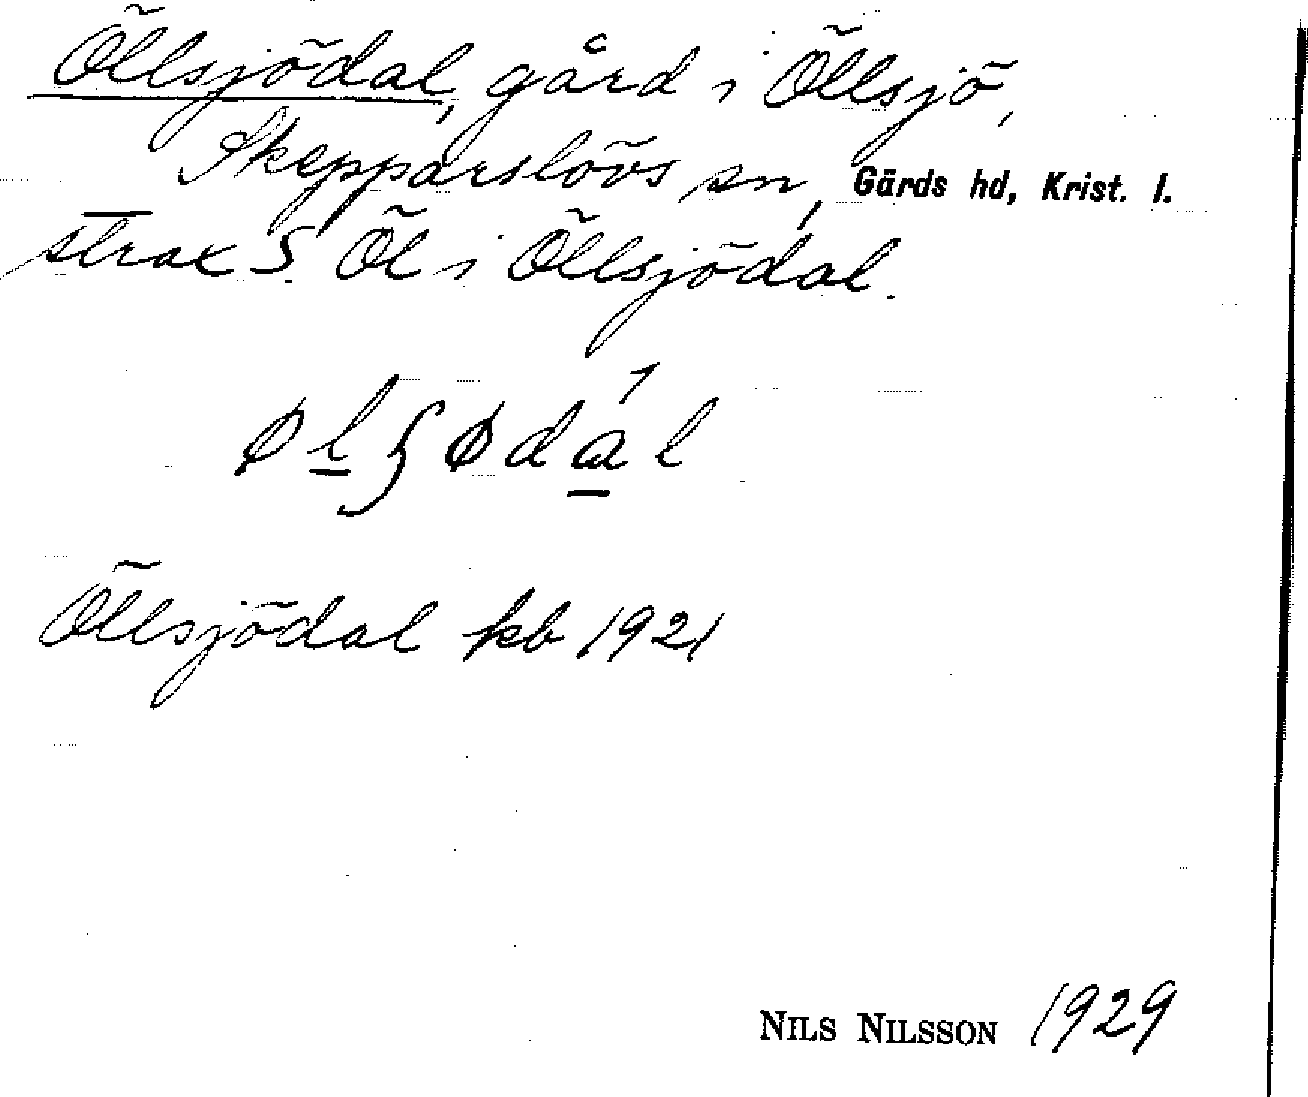 Öllsjödal, gård i Öllsjö,
Skepparslövs sn, Gärds hd, Krist. l.
strax S. Öl i Öllsjödal.
øl̲ʃødá̲l
Öllsjödal kb 1921
NILS NILSSON 1929